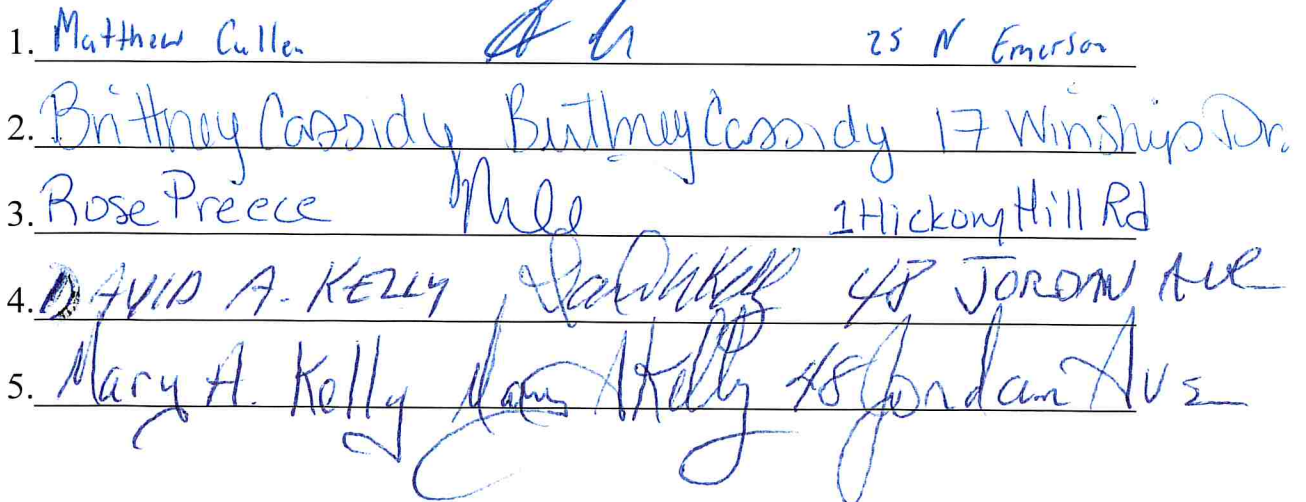 1. Matthew Cullen 25 N Emerson
2. Brittney Cassidy Brittney Cassidy 17 Winship Dr.
3. Rose Preece 1 Hickory Hill Rd
4. DAVID A. KELLY David A Kelly 48 JORDAN AVE
5. Mary A. Kelly Mary A Kelly 48 Jordan Ave